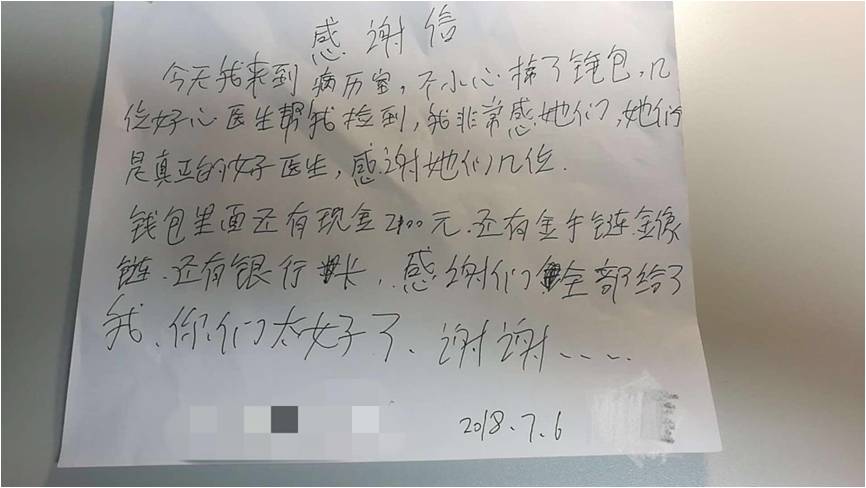 感谢信
今天我来到病历室，不小心掉了钱包，几
位好心医生帮我捡到，我非常感她们，她们
是真正的好医生，感谢她们几位.
钱包里面还有现金2100元.还有金手链.金像
链.还有银行卡，感谢们全部给了
我、你们太好了、谢谢....
2018.7.6